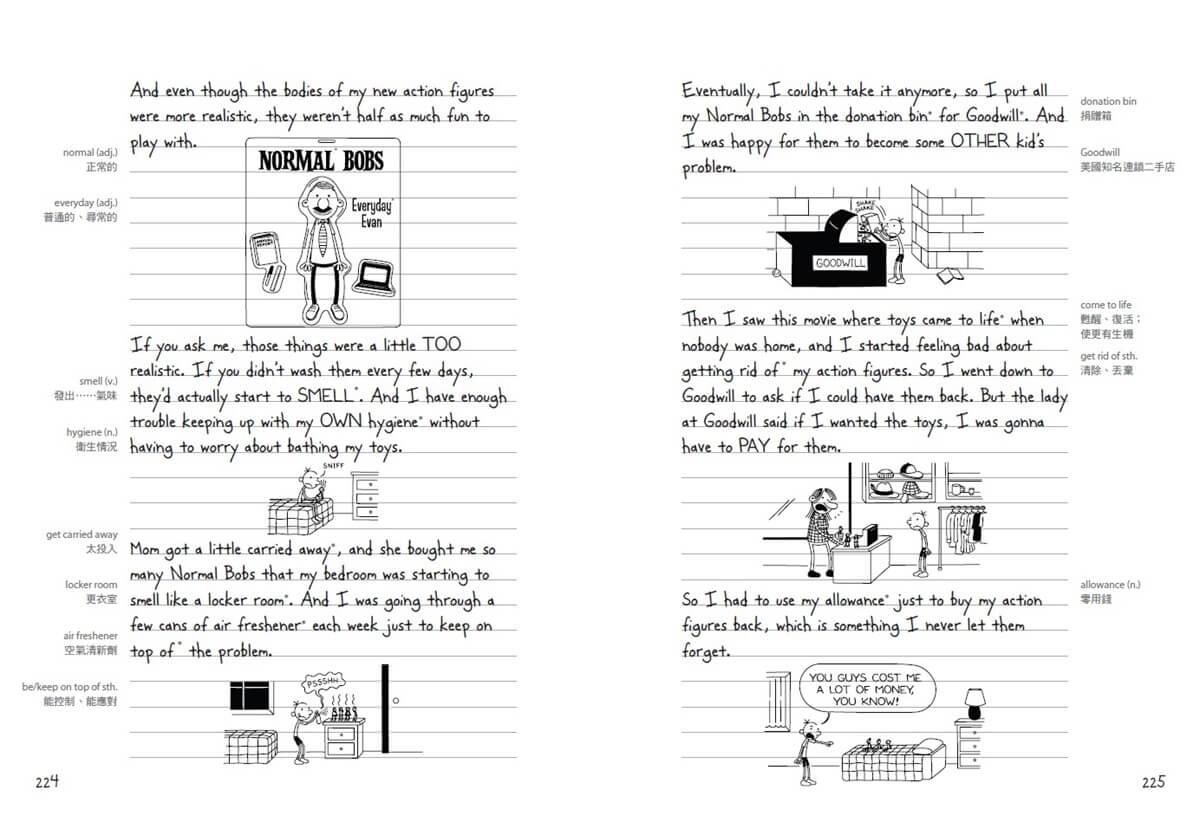 And even though the bodies of my new action figures
were more realistic, they weren't half as much fun to
play with.
NORMAL BOBS
Everyday*
Evan
ANNUAL
REPORT
normal (adj.)
正常的
everyday (adj.)
普通的、尋常的
If you ask me, those things were a little TOO
realistic. If you didn't wash them every few days,
they'd actually start to SMELL*. And I have enough
trouble keeping up with my OWN hygiene* without
having to worry about bathing my toys.
smell (v.)
發出……氣味
hygiene (n.)
衛生情況
SNIFF
Mom got a little carried away*, and she bought me so
many Normal Bobs that my bedroom was starting to
smell like a locker room*. And I was going through a
few cans of air freshener* each week just to keep on
top of* the problem.
get carried away
太投入
locker room
更衣室
air freshener
空氣清新劑
be/keep on top of sth.
能控制、能應對
PSSSHH
224
Eventually, I couldn't take it anymore, so I put all
my Normal Bobs in the donation bin* for Goodwill*. And
I was happy for them to become some OTHER kid's
problem.
donation bin
捐贈箱
Goodwill
美國知名連鎖二手店
SHAKE
SHAKE
GOODWILL
Then I saw this movie where toys came to life* when
nobody was home, and I started feeling bad about
getting rid of* my action figures. So I went down to
Goodwill to ask if I could have them back. But the lady
at Goodwill said if I wanted the toys, I was gonna
have to PAY for them.
come to life
甦醒、復活；
使更有生機
get rid of sth.
清除、丟棄
So I had to use my allowance* just to buy my action
figures back, which is something I never let them
forget.
allowance (n.)
零用錢
YOU GUYS COST ME
A LOT OF MONEY,
YOU KNOW!
225